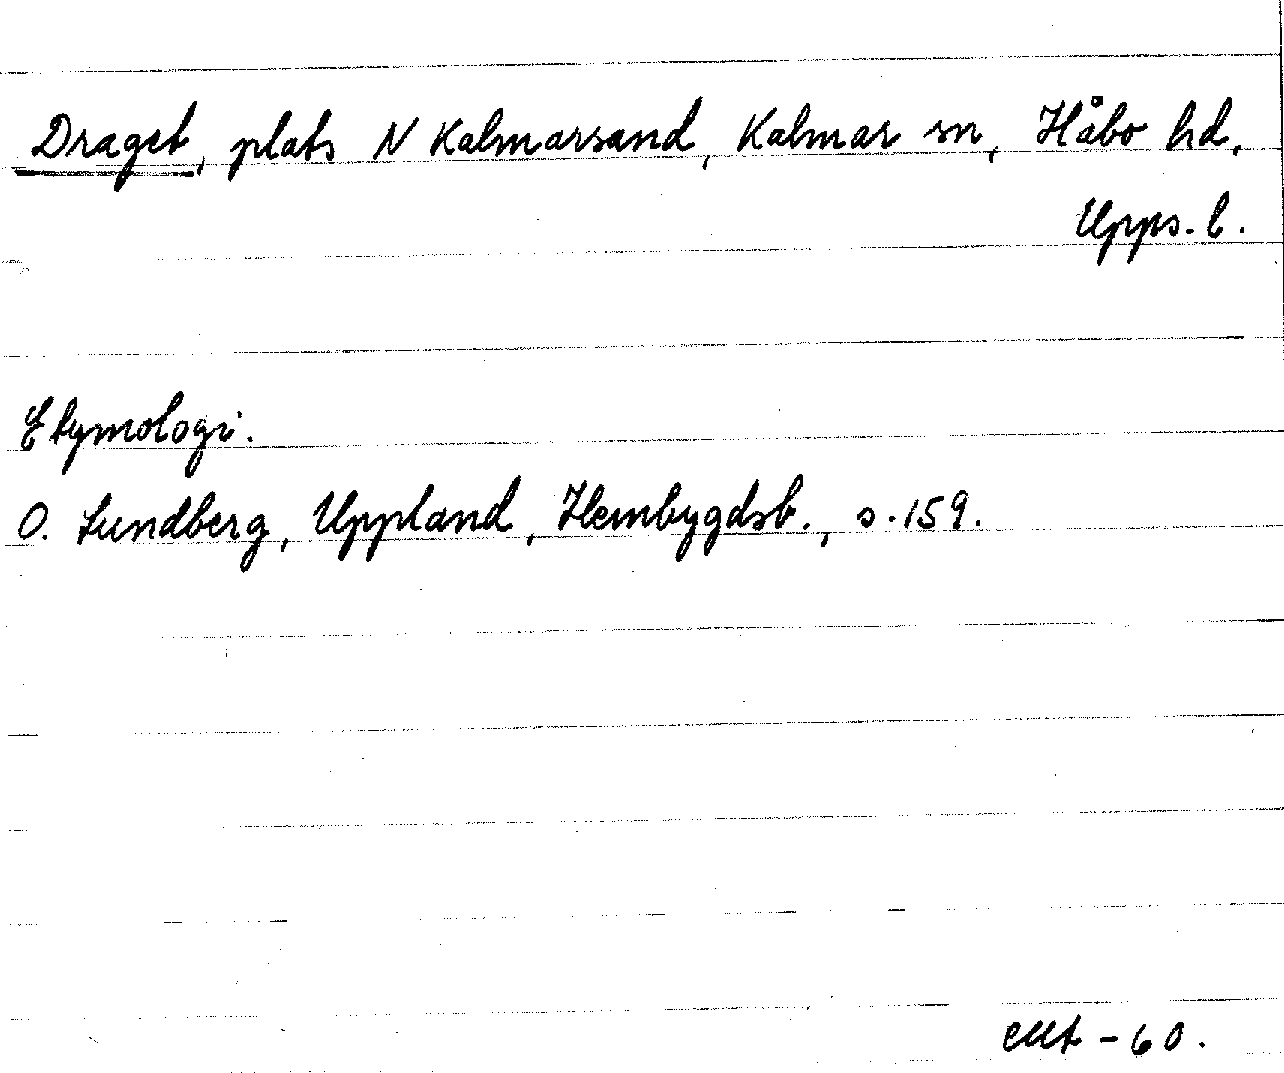 Draget, plats N Kalmarsand, Kalmar sn, Håbo hd,
Upps. l.
Etymologi.
O. Lundberg, Uppland, Hembygdsb., s. 159.
- 60.